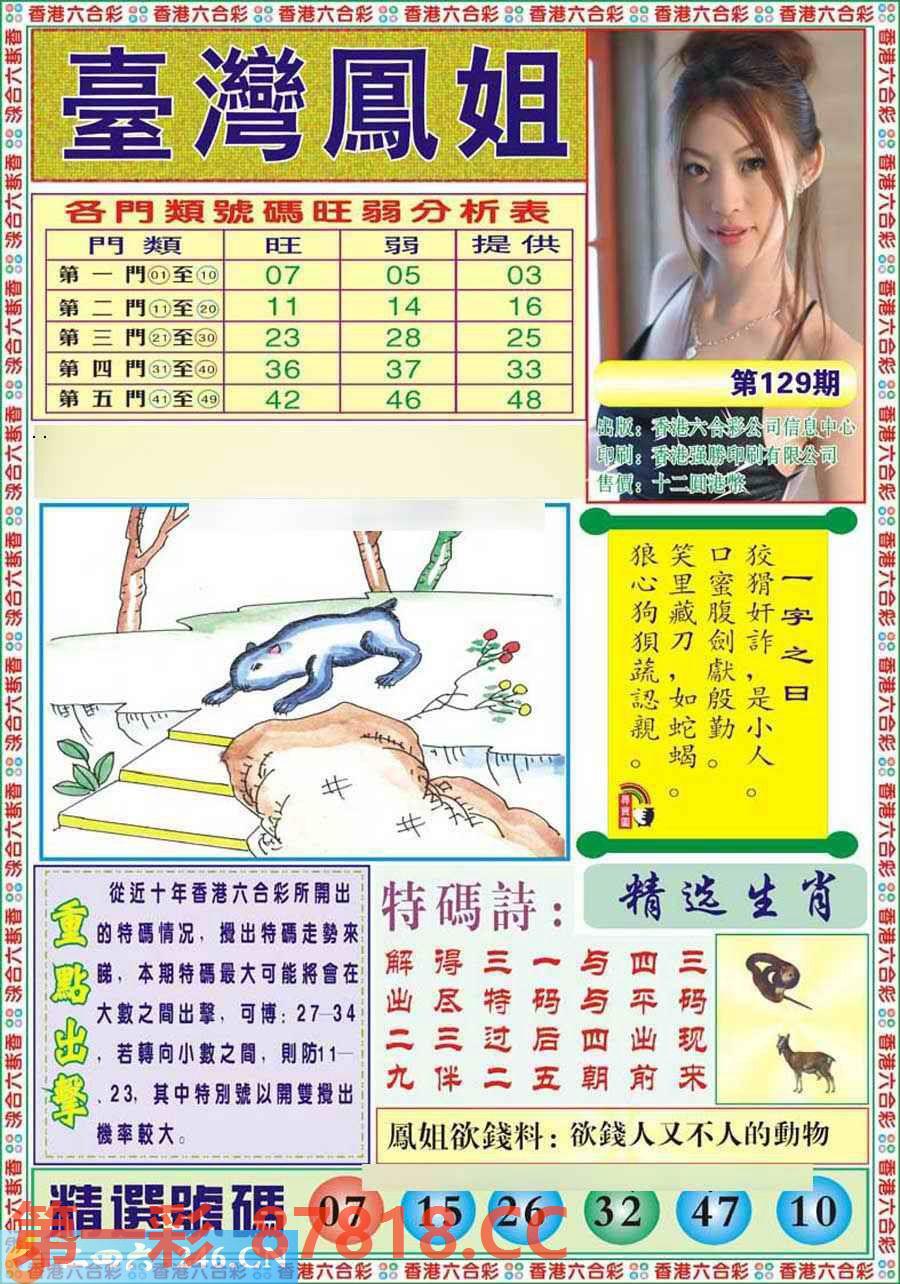 香港六合彩
臺灣鳳姐
各門類號碼旺弱分析表
門類 旺 弱 提供
第一門01至10 07 05 03
第二門11至20 11 14 16
第三門21至30 23 28 25
第四門31至40 36 37 33
第五門41至49 42 46 48
第129期
出版：香港六合彩公司信息中心
印刷：香港强勝印刷有限公司
售價：十二圓港幣
一字之曰
狡猾奸詐，是小人。
口蜜腹劍獻殷勤。
笑里藏刀，如蛇蝎。
狼心狗狽蔬認親。
尋寶圖
重點出擊
從近十年香港六合彩所開出
的特碼情况，攪出特碼走勢來
睇，本期特碼最大可能將會在
大數之間出擊，可博：27—34
，若轉向小數之間，則防11—
、23，其中特別號以開雙攪出
機率較大。
特碼詩：
三码现来
四平出前
与与四朝
一码后五
三特过二
得尽三伴
解出二九
精选生肖
鳳姐欲錢料：欲錢人又不人的動物
精選號碼 07 15 26 32 47 10
第一彩 87818.CC
246.CN